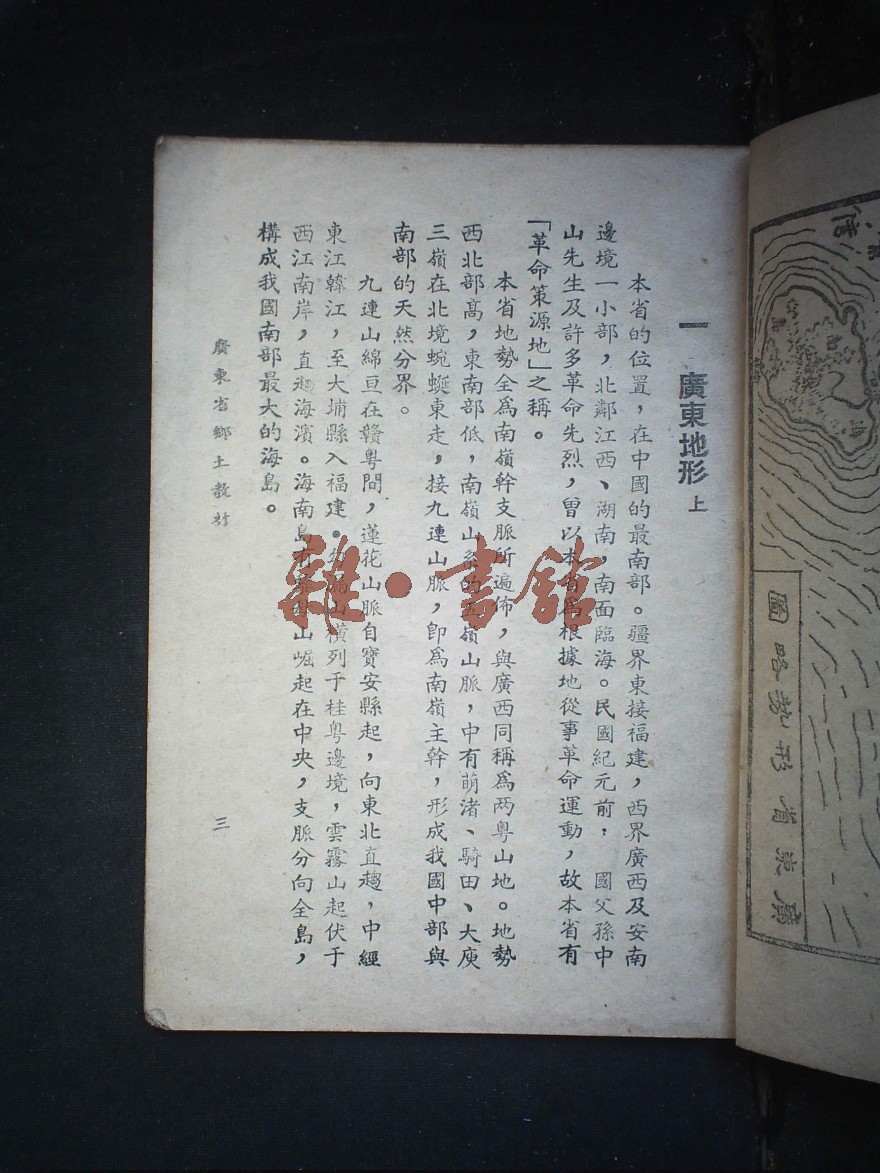 一 廣東地形 上
本省的位置，在中國的最南部。疆界東接福建，西界廣西及安南
邊境一小部，北鄰江西、湖南，南面臨海。民國紀元前，國父孫中
山先生及許多革命先烈，曾以本省爲根據地從事革命運動，故本省有
「革命策源地」之稱。
本省地勢全爲南嶺幹支脈所遍佈，與廣西同稱爲两粤山地。地勢
西北部高，東南部低，南嶺山系的五嶺山脈，中有萌渚、騎田、大庾
三嶺在北境蜿蜒東走，接九連山脈，卽爲南嶺主幹，形成我國中部與
南部的天然分界。
九連山綿亘在贛粤間，蓮花山脈自寶安縣起，向東北直趨，中經
東江韓江，至大埔縣入福建。山橫列于桂粤邊境，雲霧山起伏于
西江南岸，直趨海濱。海南島山崛起在中央，支脈分向全島，
構成我國南部最大的海島。
廣東省鄉土教材
三
雜·書館
廣東省形勢略圖